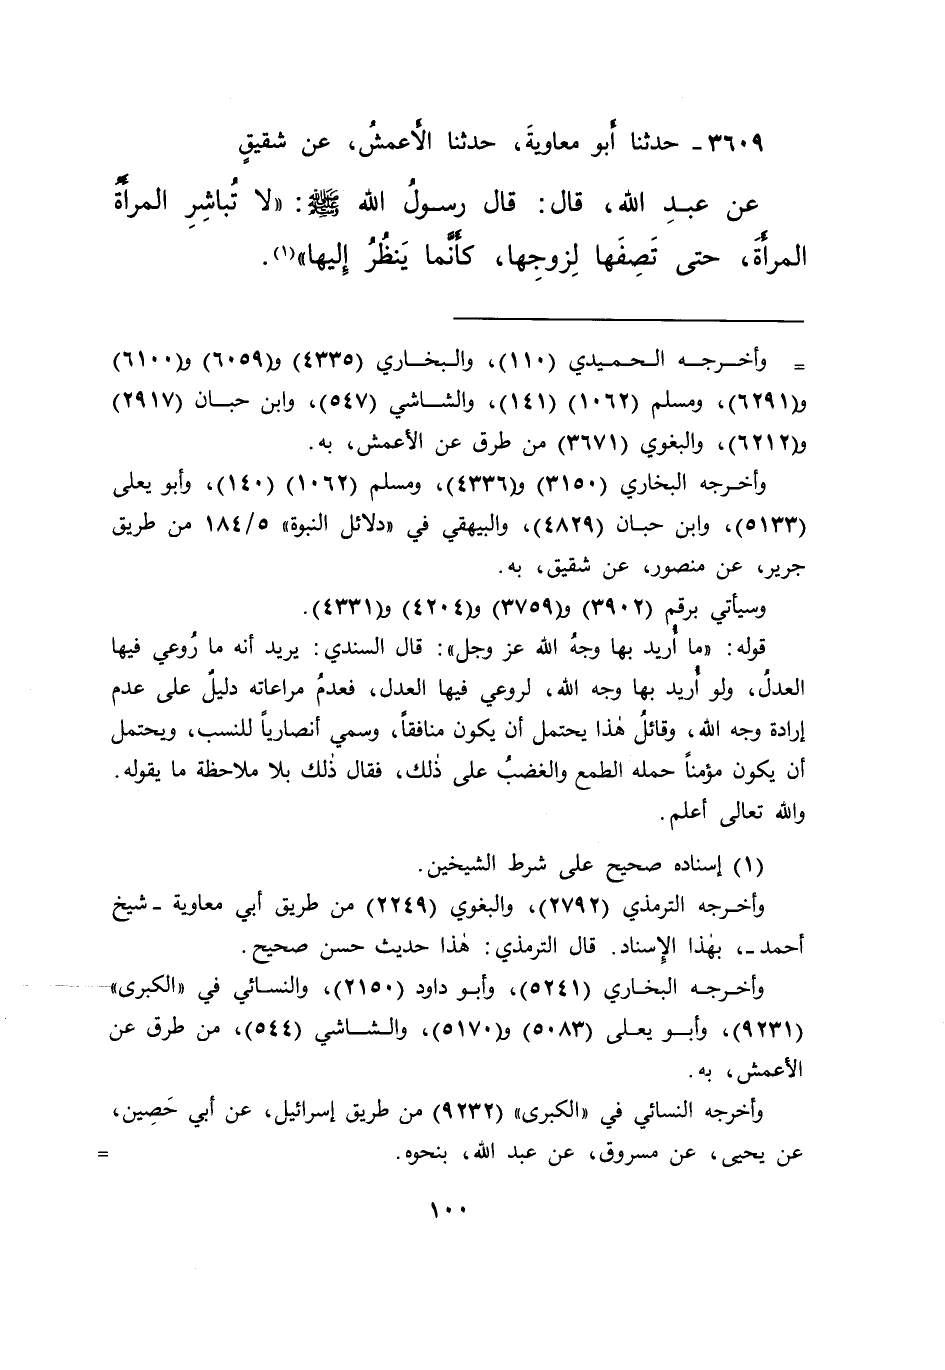 ٣٦٠٩ ـ حدثنا أَبو معاويةَ، حدثنا الأَعمشُ، عن شقيقٍ
عن عبدِ الله، قال: قال رسولُ الله ﷺ: «لا تُباشِرِ المرأَةُ
المرأَةَ، حتى تَصِفَها لِزوجِها، كأَنَّما يَنظُرُ إِليها»(١).
= وأخرجه الحميدي (١١٠)، والبخاري (٤٣٣٥) و(٦٠٥٩) و(٦١٠٠)
و(٦٢٩١)، ومسلم (١٠٦٢) (١٤١)، والشاشي (٥٤٧)، وابن حبان (٢٩١٧)
و(٦٢١٢)، والبغوي (٣٦٧١) من طرق عن الأعمش، به.
وأخرجه البخاري (٣١٥٠) و(٤٣٣٦)، ومسلم (١٠٦٢) (١٤٠)، وأبو يعلى
(٥١٣٣)، وابن حبان (٤٨٢٩)، والبيهقي في «دلائل النبوة» ١٨٤/٥ من طريق
جرير، عن منصور، عن شقيق، به.
وسيأتي برقم (٣٩٠٢) و(٣٧٥٩) و(٤٢٠٤) و(٤٣٣١).
قوله: «ما أُريد بها وجهُ الله عز وجل»: قال السندي: يريد أنه ما رُوعي فيها
العدلُ، ولو أُريد بها وجه الله، لروعي فيها العدل، فعدمُ مراعاته دليلٌ على عدم
إرادة وجه الله، وقائلُ هٰذا يحتمل أن يكون منافقاً، وسمي أنصارياً للنسب، ويحتمل
أن يكون مؤمناً حمله الطمع والغضبُ على ذٰلك، فقال ذٰلك بلا ملاحظة ما يقوله.
والله تعالى أعلم.
(١) إسناده صحيح على شرط الشيخين.
وأخرجه الترمذي (٢٧٩٢)، والبغوي (٢٢٤٩) من طريق أبي معاوية ـ شيخ
أحمد ـ، بهٰذا الإِسناد. قال الترمذي: هٰذا حديث حسن صحيح.
وأخرجه البخاري (٥٢٤١)، وأبو داود (٢١٥٠)، والنسائي في «الكبرى»
(٩٢٣١)، وأبو يعلى (٥٠٨٣) و(٥١٧٠)، والشاشي (٥٤٤)، من طرق عن
الأعمش، به.
وأخرجه النسائي في «الكبرى» (٩٢٣٢) من طريق إسرائيل، عن أبي حَصِين،
عن يحيى، عن مسروق، عن عبد الله، بنحوه. =
١٠٠